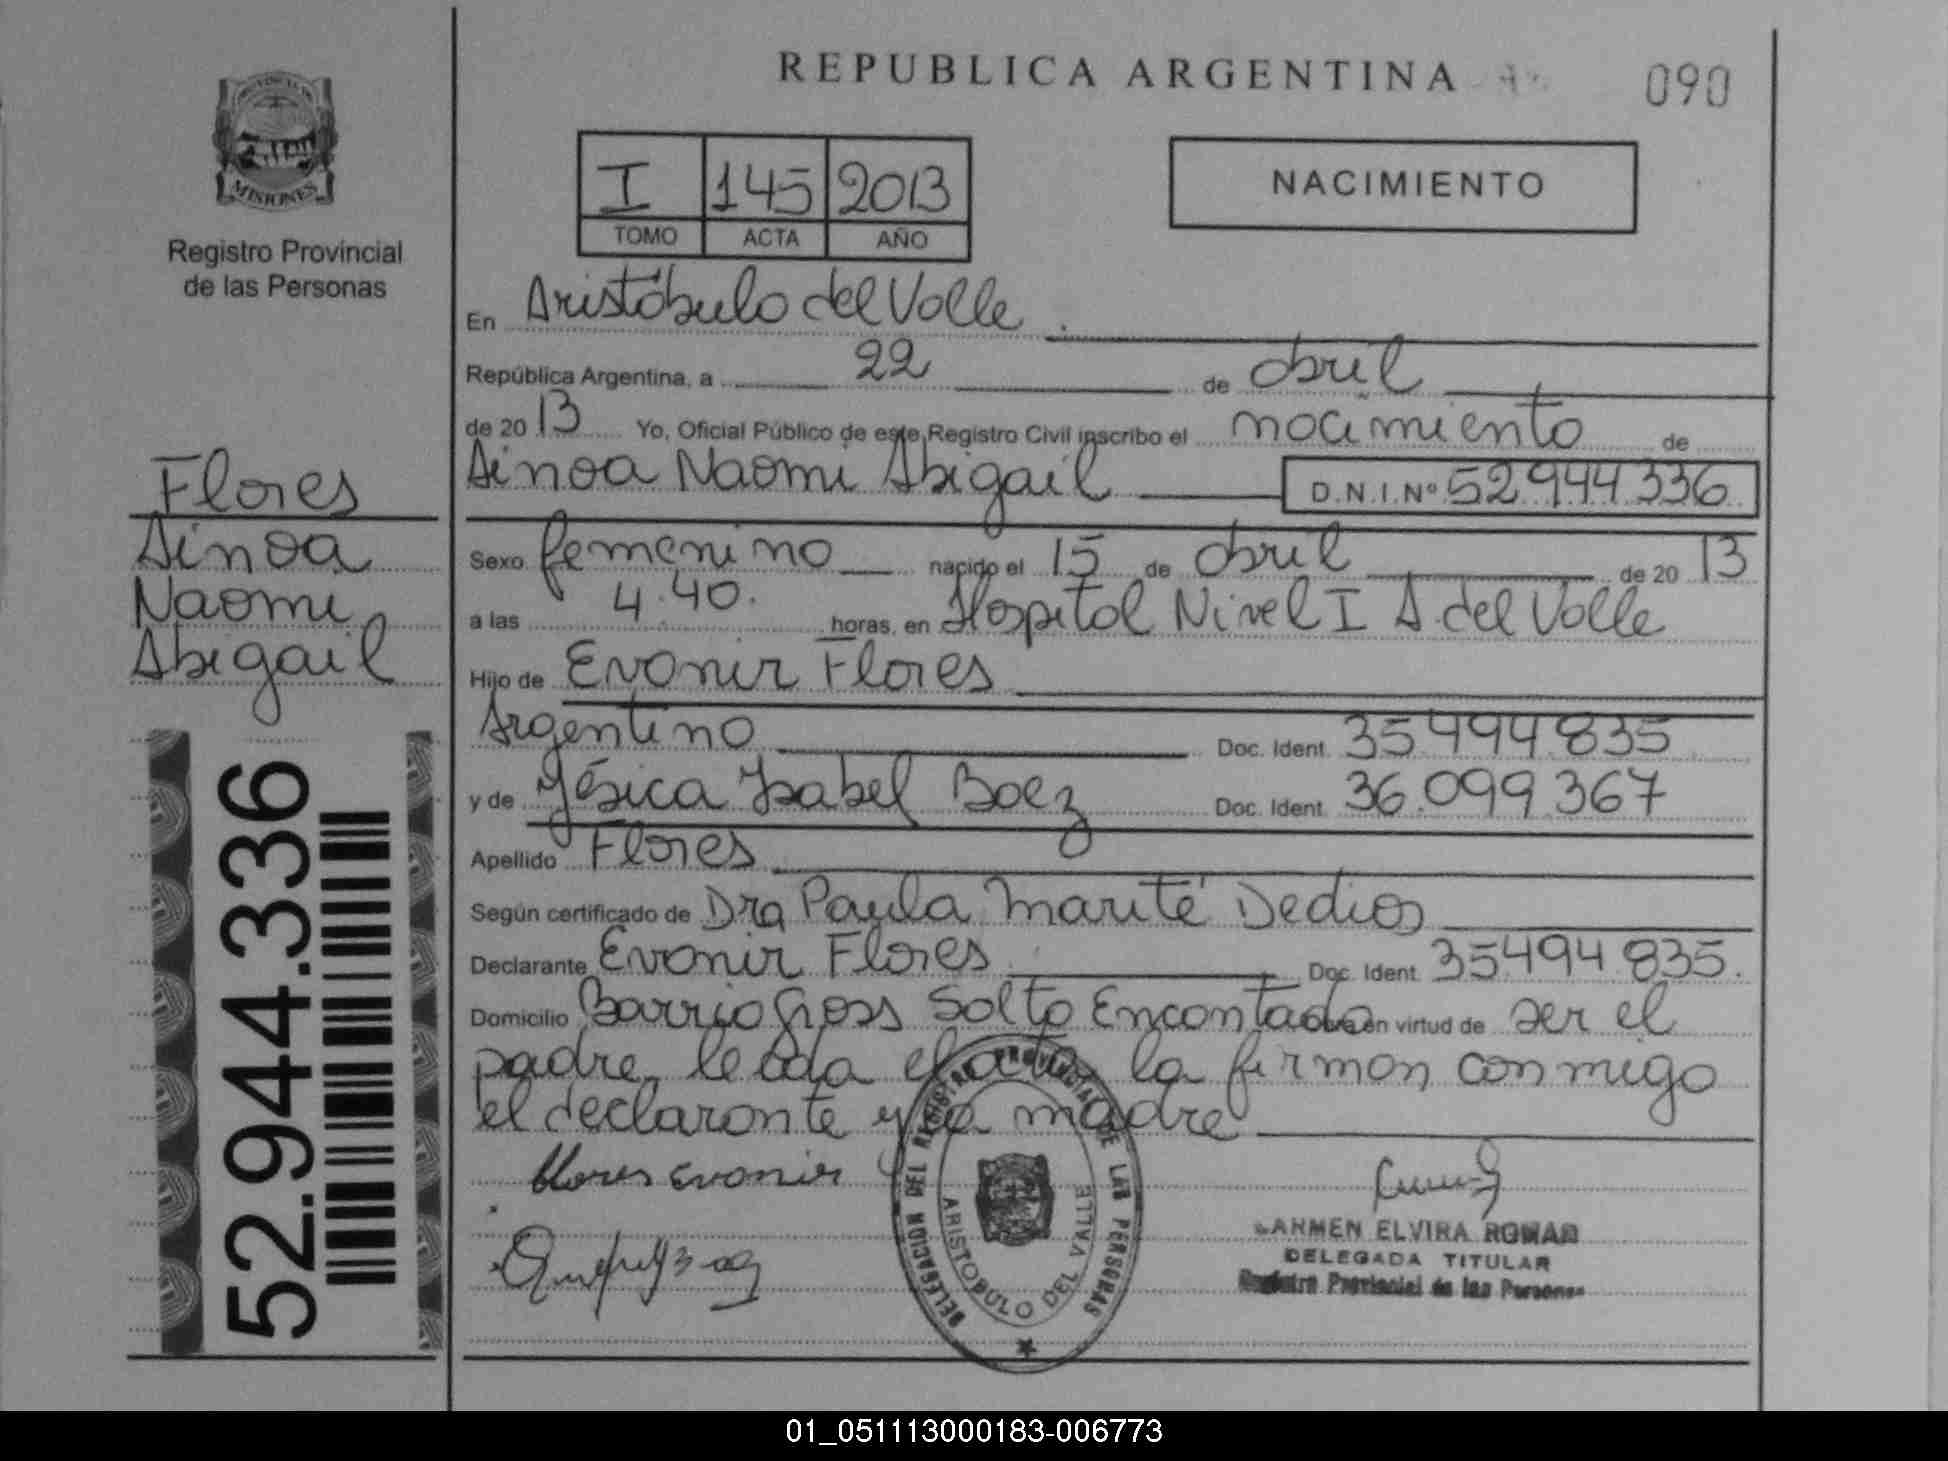 REPUBLICA ARGENTINA
090
PROVINCIA DE
MISIONES
Registro Provincial
de las Personas
I 145 2013
TOMO ACTA AÑO
NACIMIENTO
En Aristóbulo del Valle
República Argentina, a 22 de abril
de 2013 Yo, Oficial Público de este Registro Civil inscribo el nacimiento de
Ainoa Naomi Abigail D.N.I.Nº 52.944.336
Flores
Ainoa
Naomi
Abigail
Sexo femenino nacido el 15 de abril de 2013
a las 4.40. horas, en Hospital Nivel I A. del Valle
Hijo de Evonir Flores
Argentino Doc. Ident. 35.494.835
y de Yésica Isabel Baez Doc. Ident. 36.099.367
Apellido Flores
Según certificado de Dra Paula Marité Dedios
Declarante Evonir Flores Doc. Ident. 35.494.835.
Domicilio Barrio Gross Salto Encantado en virtud de ser el
padre, leída el acta la firman conmigo
el declarante y la madre
52.944.336
Flores Evonir
DELEGACION DEL REGISTRO PROVINCIAL DE LAS PERSONAS
ARISTOBULO DEL VALLE
CARMEN ELVIRA ROMAN
DELEGADA TITULAR
Registro Provincial de las Personas
01_051113000183-006773